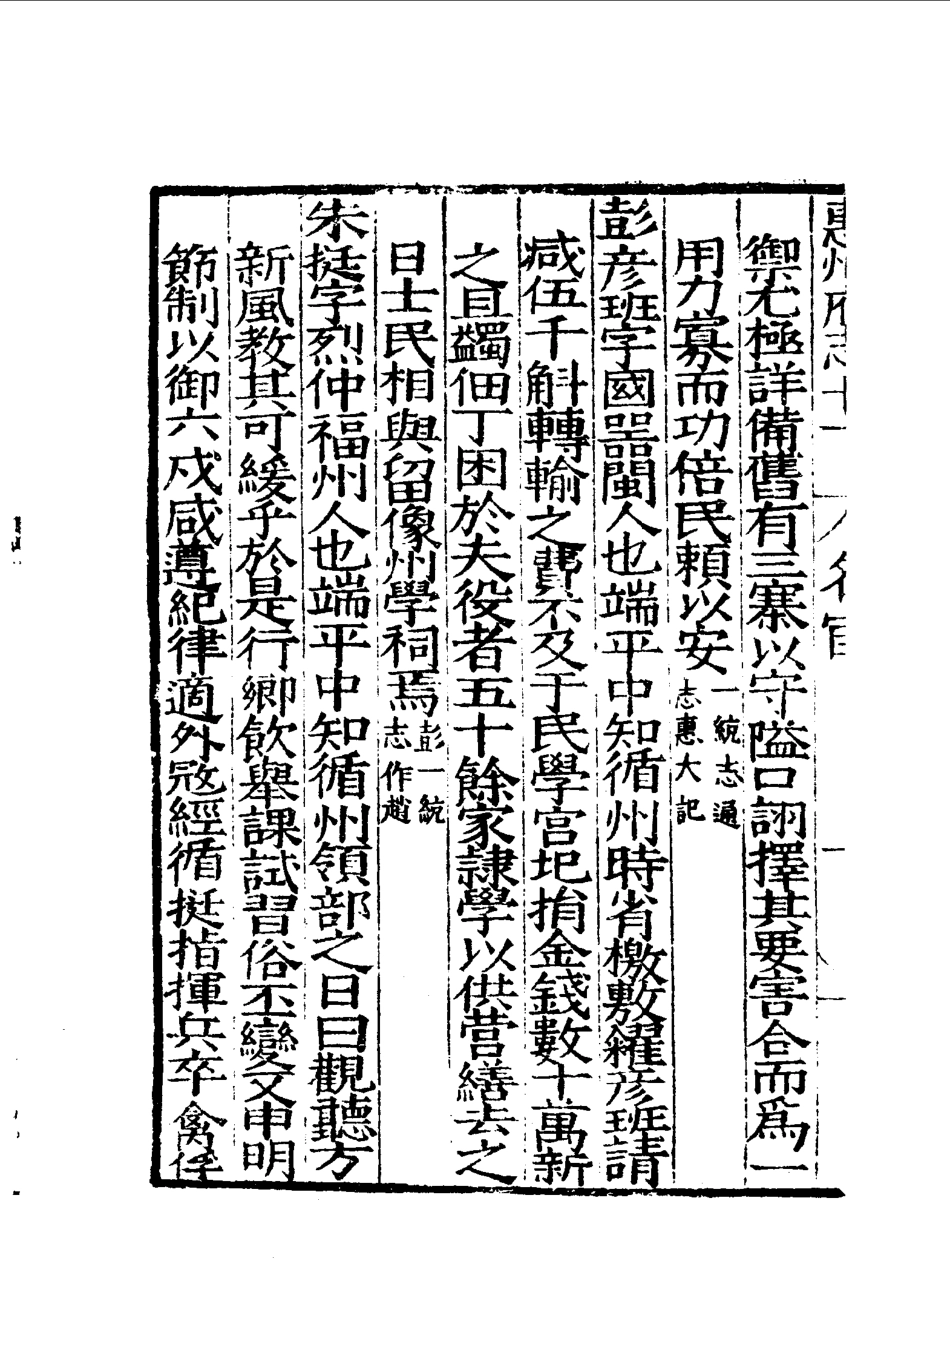 惠州府志十一 名宦
禦尤極詳備舊有三寨以守隘口詡擇其要害合而爲一
用力寡而功倍民賴以安一統志通志惠大記
彭彦班字國器閩人也端平中知循州時省檄敷糴彦班請
咸伍千斛轉輸之費不及于民學宫圯捐金錢數十萬新
之且蠲佃丁困於夫役者五十餘家隷學以供营繕去之
日士民相與留像州學祠焉彭一統志作趙
朱挺字烈仲福州人也端平中知循州領部之日曰觀聽方
新風教其可緩乎於是行鄉飲舉課試習俗丕變又申明
節制以御六戍咸尊紀律適外㓂經循挺指揮兵卒禽俘